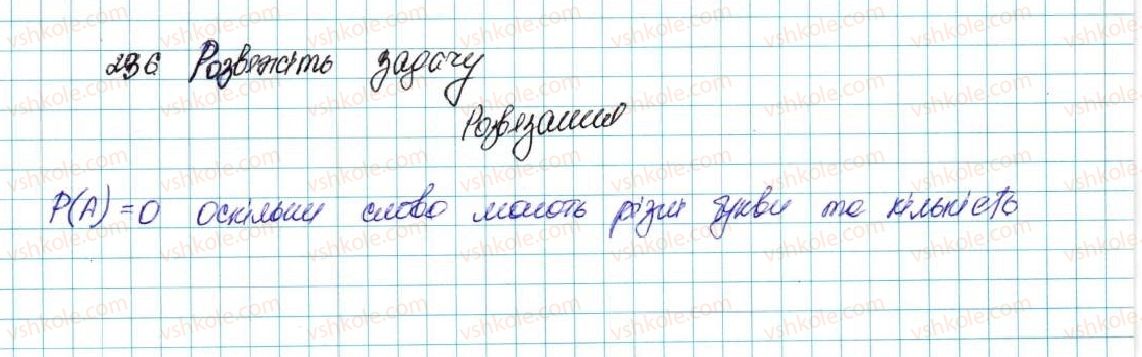 236 Розвяжіть задачу
Розвязання
P(A)=0 оскільки слово мають різні букви та кількість